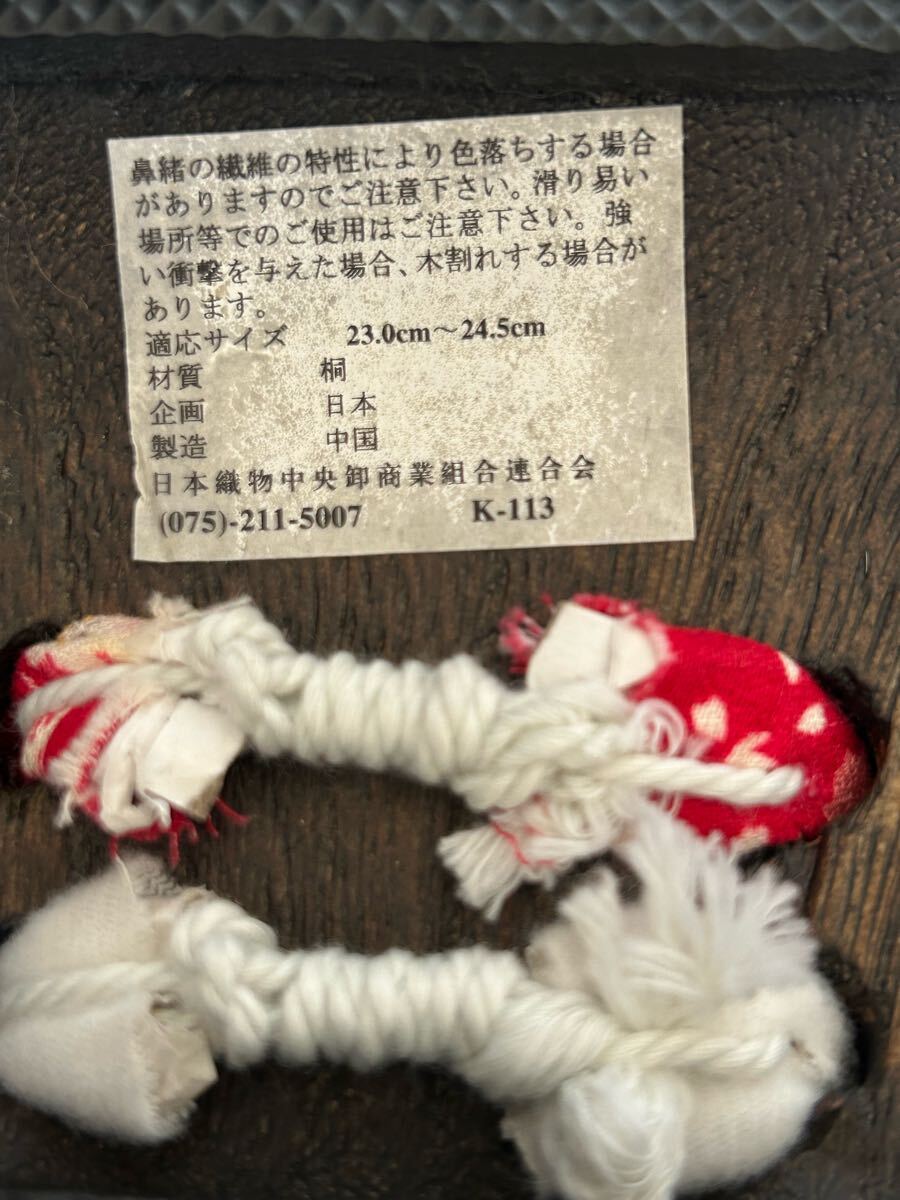 鼻緒の繊維の特性により色落ちする場合
がありますのでご注意下さい。滑り易い
場所等でのご使用はご注意下さい。強
い衝撃を与えた場合、木割れする場合が
あります。
適応サイズ 23.0cm～24.5cm
材質 桐
企画 日本
製造 中国
日本織物中央卸商業組合連合会
(075)-211-5007 K-113